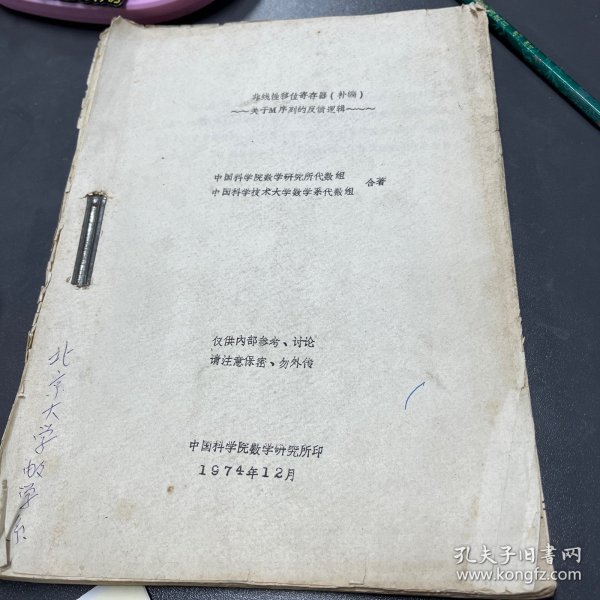 非线性移位寄存器(补编)
~~关于M序列的反馈逻辑~~~~
中国科学院数学研究所代数组
中国科学技术大学数学系代数组
合著
仅供内部参考、讨论
请注意保密、勿外传
中国科学院数学研究所印
1974年12月
北京大学数学
孔夫子旧书网
www.kongfz.com